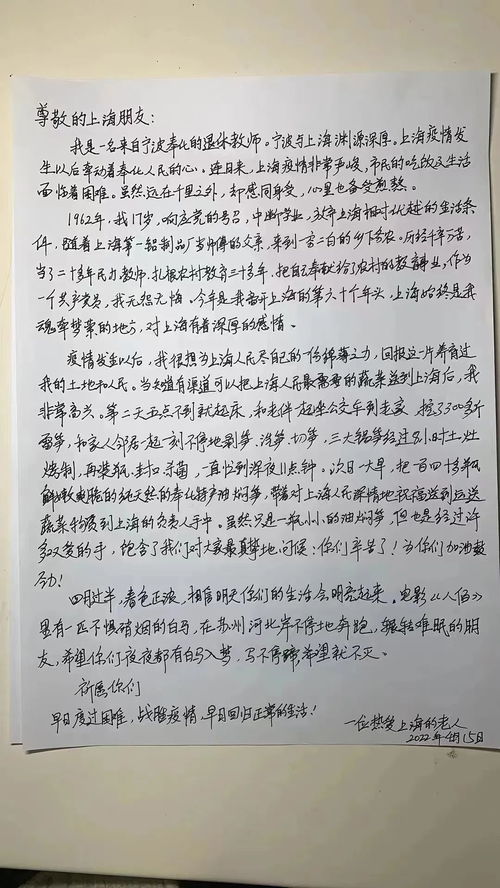 尊敬的上海朋友：
我是一名来自宁波奉化的退休教师。宁波与上海渊源深厚。上海疫情发
生以后牵动着奉化人民的心。连日来，上海疫情非常严峻，市民的吃饭及生活
面临着困难。虽然远在千里之外，却感同身受，心里也备受煎熬。
1962年，我17岁，响应党的号召，中断学业，放弃上海相对优越的生活条
件，随着上海第一铝制品厂当师傅的父亲，来到一穷二白的乡下务农。历经千辛万苦，
当了二十多年民办教师，扎根农村教育三十多年，把自己奉献给了农村的教育事业，作为
一个共产党员，我无怨无悔。今年是我离开上海的第六十个年头，上海始终是我
魂牵梦萦的地方，对上海有着深厚的感情。
疫情发生以后，我很想为上海人民尽自己的一份绵薄之力，回报这片养育过
我的土地和人民。当知道有渠道可以把上海人民最需要的蔬菜送到上海后，我
非常高兴。第二天五点不到就起床，和老伴一起坐公交车到老家，挖了300多斤
雷笋，和家人邻居一起一刻不停地剥笋、洗笋、切笋，三大锅笋经过8小时土灶
烧制，再装瓶、封口、杀菌，一直忙到深夜11点钟。次日一大早，把一百四十多瓶
鲜嫩爽脆的纯天然的奉化特产油焖笋，带着对上海人民深情地祝福送到运送
蔬菜物资到上海的负责人手中。虽然只是一瓶小小的油焖笋，但也是经过许
多双爱的手，饱含了我们对大家最真挚地问候：你们辛苦了！为你们加油鼓
劲！
四月过半，春色正浓，相信明天你们的生活会明亮起来。电影《八佰》
里有一匹不惧硝烟的白马，在苏州河北岸不停地奔跑，辗转难眠的朋
友，希望你们夜夜都有白马入梦，马不停蹄，希望就不灭。
祈愿你们
早日度过困难，战胜疫情，早日回归正常的生活！
一位热爱上海的老人
2022年4月15日